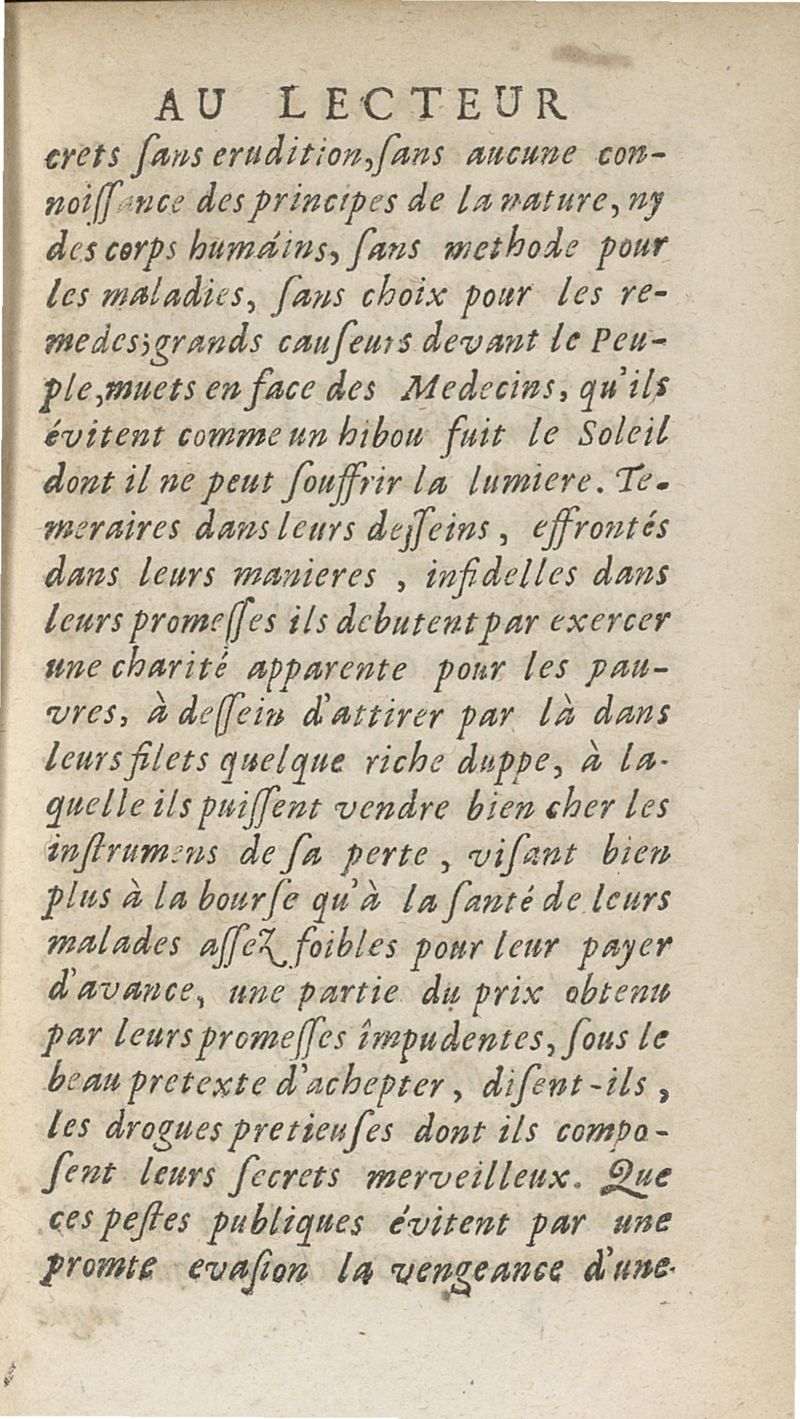 AU LECTEUR
crets ſans erudition,ſans aucune con-
noiſſance des principes de la nature, ny
des corps humáins, ſans methode pour
les maladies, ſans choix pour les re-
medes;grands cauſeurs devant le Peu-
ple,muets en face des Medecins, qu'ils
évitent comme un hibou fuit le Soleil
dont il ne peut ſouffrir la lumiere. Te-
meraires dans leurs deſſeins, effrontés
dans leurs manieres, infidelles dans
leurs promeſſes ils debutent par exercer
une charité apparente pour les pau-
vres, à deſſein d'attirer par là dans
leurs filets quelque riche duppe, à la-
quelle ils puiſſent vendre bien cher les
inſtrumens de ſa perte, viſant bien
plus à la bourſe qu'à la ſanté de leurs
malades aſſez foibles pour leur payer
d'avance, une partie du prix obtenu
par leurs promeſſes împudentes, ſous le
beau pretexte d'achepter, diſent-ils,
les drogues pretieuſes dont ils compo-
ſent leurs ſecrets merveilleux. Que
ces peſtes publiques évitent par une
promte evaſion la vengeance d'une